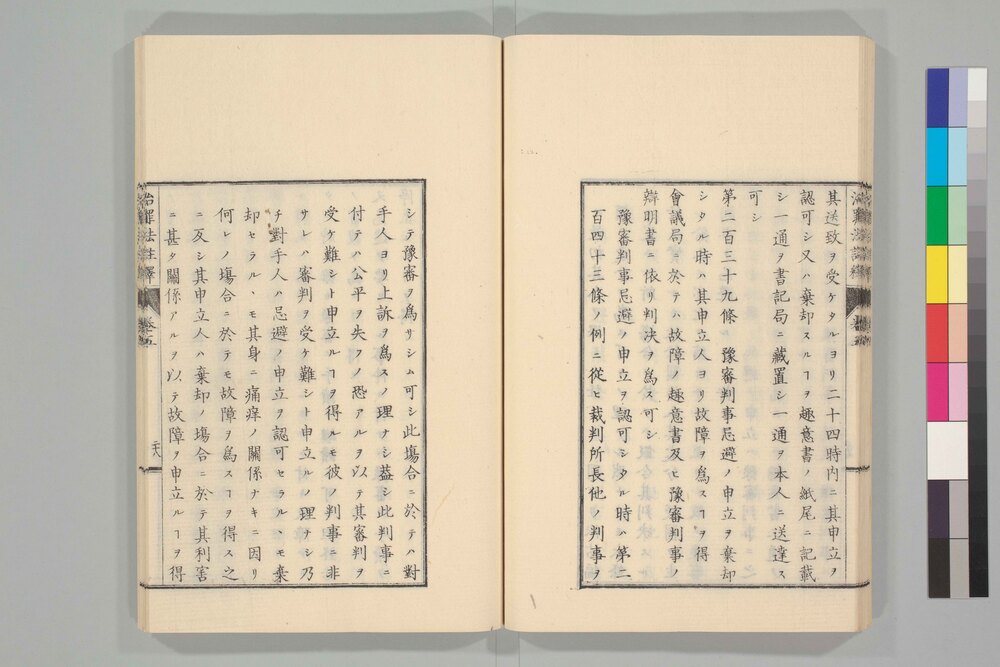 其送致ヲ受ケタルヨリ二十四時内ニ其申立ヲ
認可シ又ハ棄却スルヿヲ趣意書ノ紙尾ニ記載
シ一通ヲ書記局ニ藏置シ一通ヲ本人ニ送達ス
可シ
第二百三十九條 豫審判事忌避ノ申立ヲ棄却
シタル時ハ其申立人ヨリ故障ヲ爲スヿヲ得
會議局ニ於テハ故障ノ趣意書及ヒ豫審判事ノ
辯明書ニ依リ判决ヲ爲ス可シ
豫審判事忌避ノ申立ヲ認可シタル時ハ第二
百四十三條ノ例ニ從ヒ裁判所長他ノ判事ヲ
シテ豫審ヲ爲サシム可シ此塲合ニ於テハ對
手人ヨリ上訴ヲ爲スノ理ナシ蓋シ此判事ニ
付テハ公平ヲ失フノ恐アルヲ以テ其審判ヲ
受ケ難シト申立ルヿヲ得ルモ彼ノ判事ニ非
サレハ審判ヲ受ケ難シト申立ルノ理ナシ乃
チ對手人ハ忌避ノ申立ヲ認可セラルヽモ棄
却セラルヽモ其身ニ痛痒ノ關係ナキニ因リ
何レノ塲合ニ於テモ故障ヲ爲スヿヲ得ス之
ニ反シ其申立人ハ棄却ノ塲合ニ於テ其利害
ニ甚タ關係アルヲ以テ故障ヲ申立ルヿヲ得
治罪法註釋 卷五